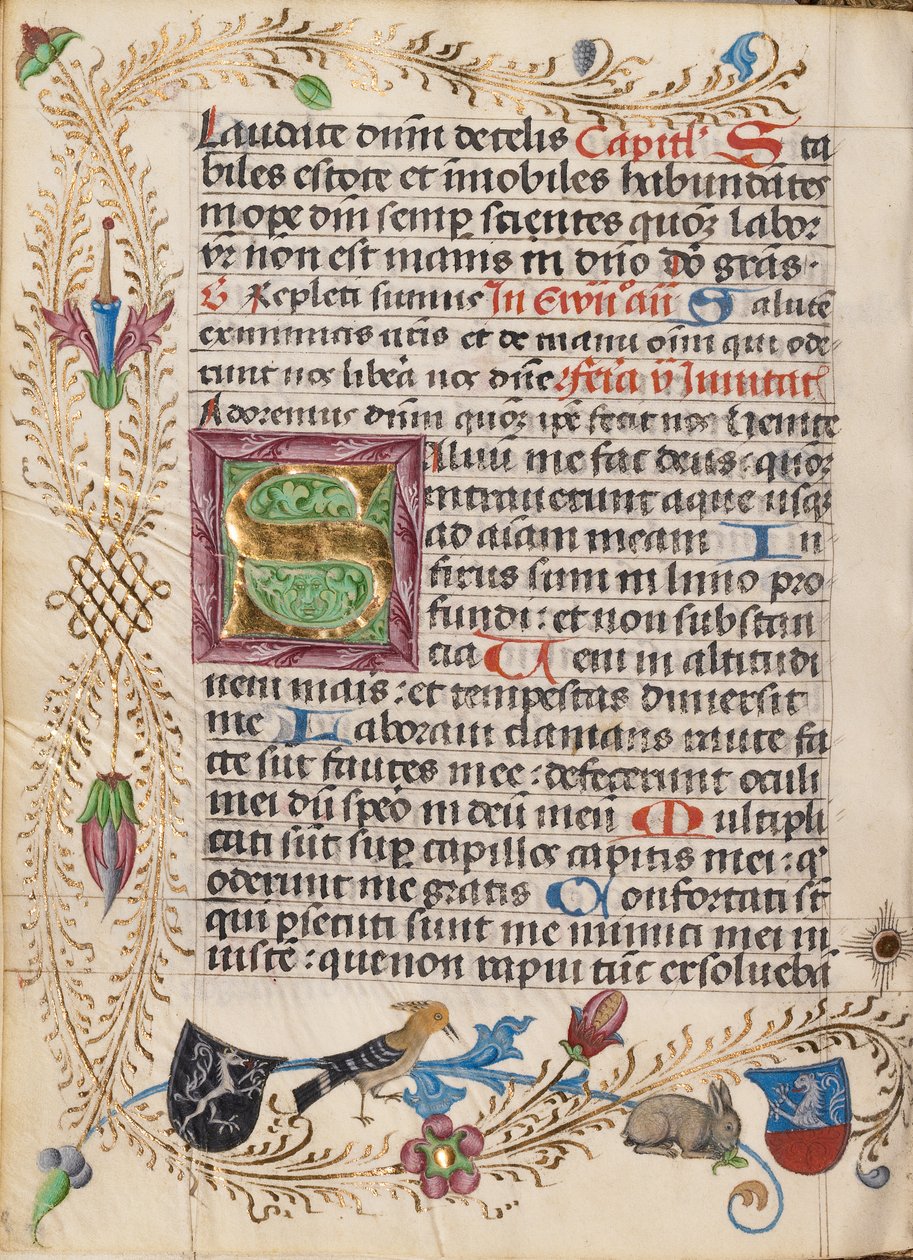 Laudate dnm̄ de celis Capitl' Sta
biles estote et īmobiles habundātes
in ope dn̄i semp̱ scientes quoꝝ labor
vr̄ non est inanis in dn̄o do grās·
Repleti sumus In Ewū aū Salutē
ex inimicis nr̄is et de manu oīm qui ode
runt nos libeā nos dn̄e feria v Inuitat
Adoremus dnm̄ quoꝝ ip̄e fecit nos Uenite
Saluū me fac deus : quoꝝ
intrauerunt aque usqꝫ
ad aīam meam In
fixus sum in limo pro
fundi : et non substan
cia Ueni in altitudi
nem maīs : et tempestas dimersit
me Laboraui clamans rauce fa
cte sūt fauces mee : defecerunt oculi
mei dū speō in deū meū Multipli
cati sūt sup̱ capillos capitis mei : q'
oderunt me gratis Confortati sr̄
qui p̱secuti sunt me inimici mei in
iuste : que non rapui tūc exsoluebā